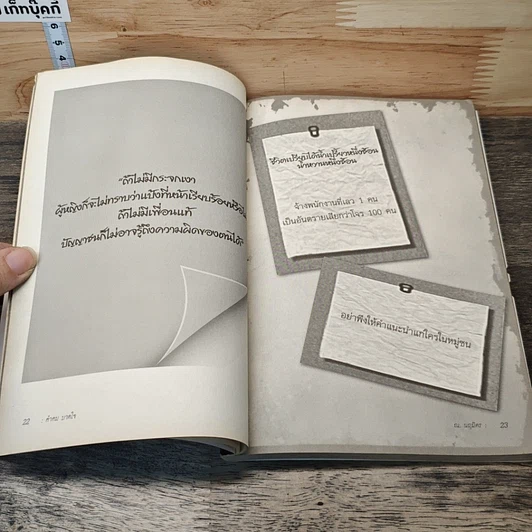 เก็ทบุ๊คกี้
6
5
4
"ถ้าไม่มีกระจกเงา
ผู้หญิงก็จะไม่ทราบว่าแป้งที่หน้าเรียบร้อยหรือไม่
ถ้าไม่มีเพื่อนแท้
ปัญญาชนก็ไม่อาจรู้ถึงความผิดของตนได้"
22
: คำคม บาดใจ
น้ำหวานหนึ่งช้อน
จ้างพนักงานที่เลว 1 คน
เป็นอันตรายเสียกว่าโจร 100 คน
อย่าพึงให้คำแนะนำแก่ใครในหมู่ชน
ณ. นฤมิตร :
23